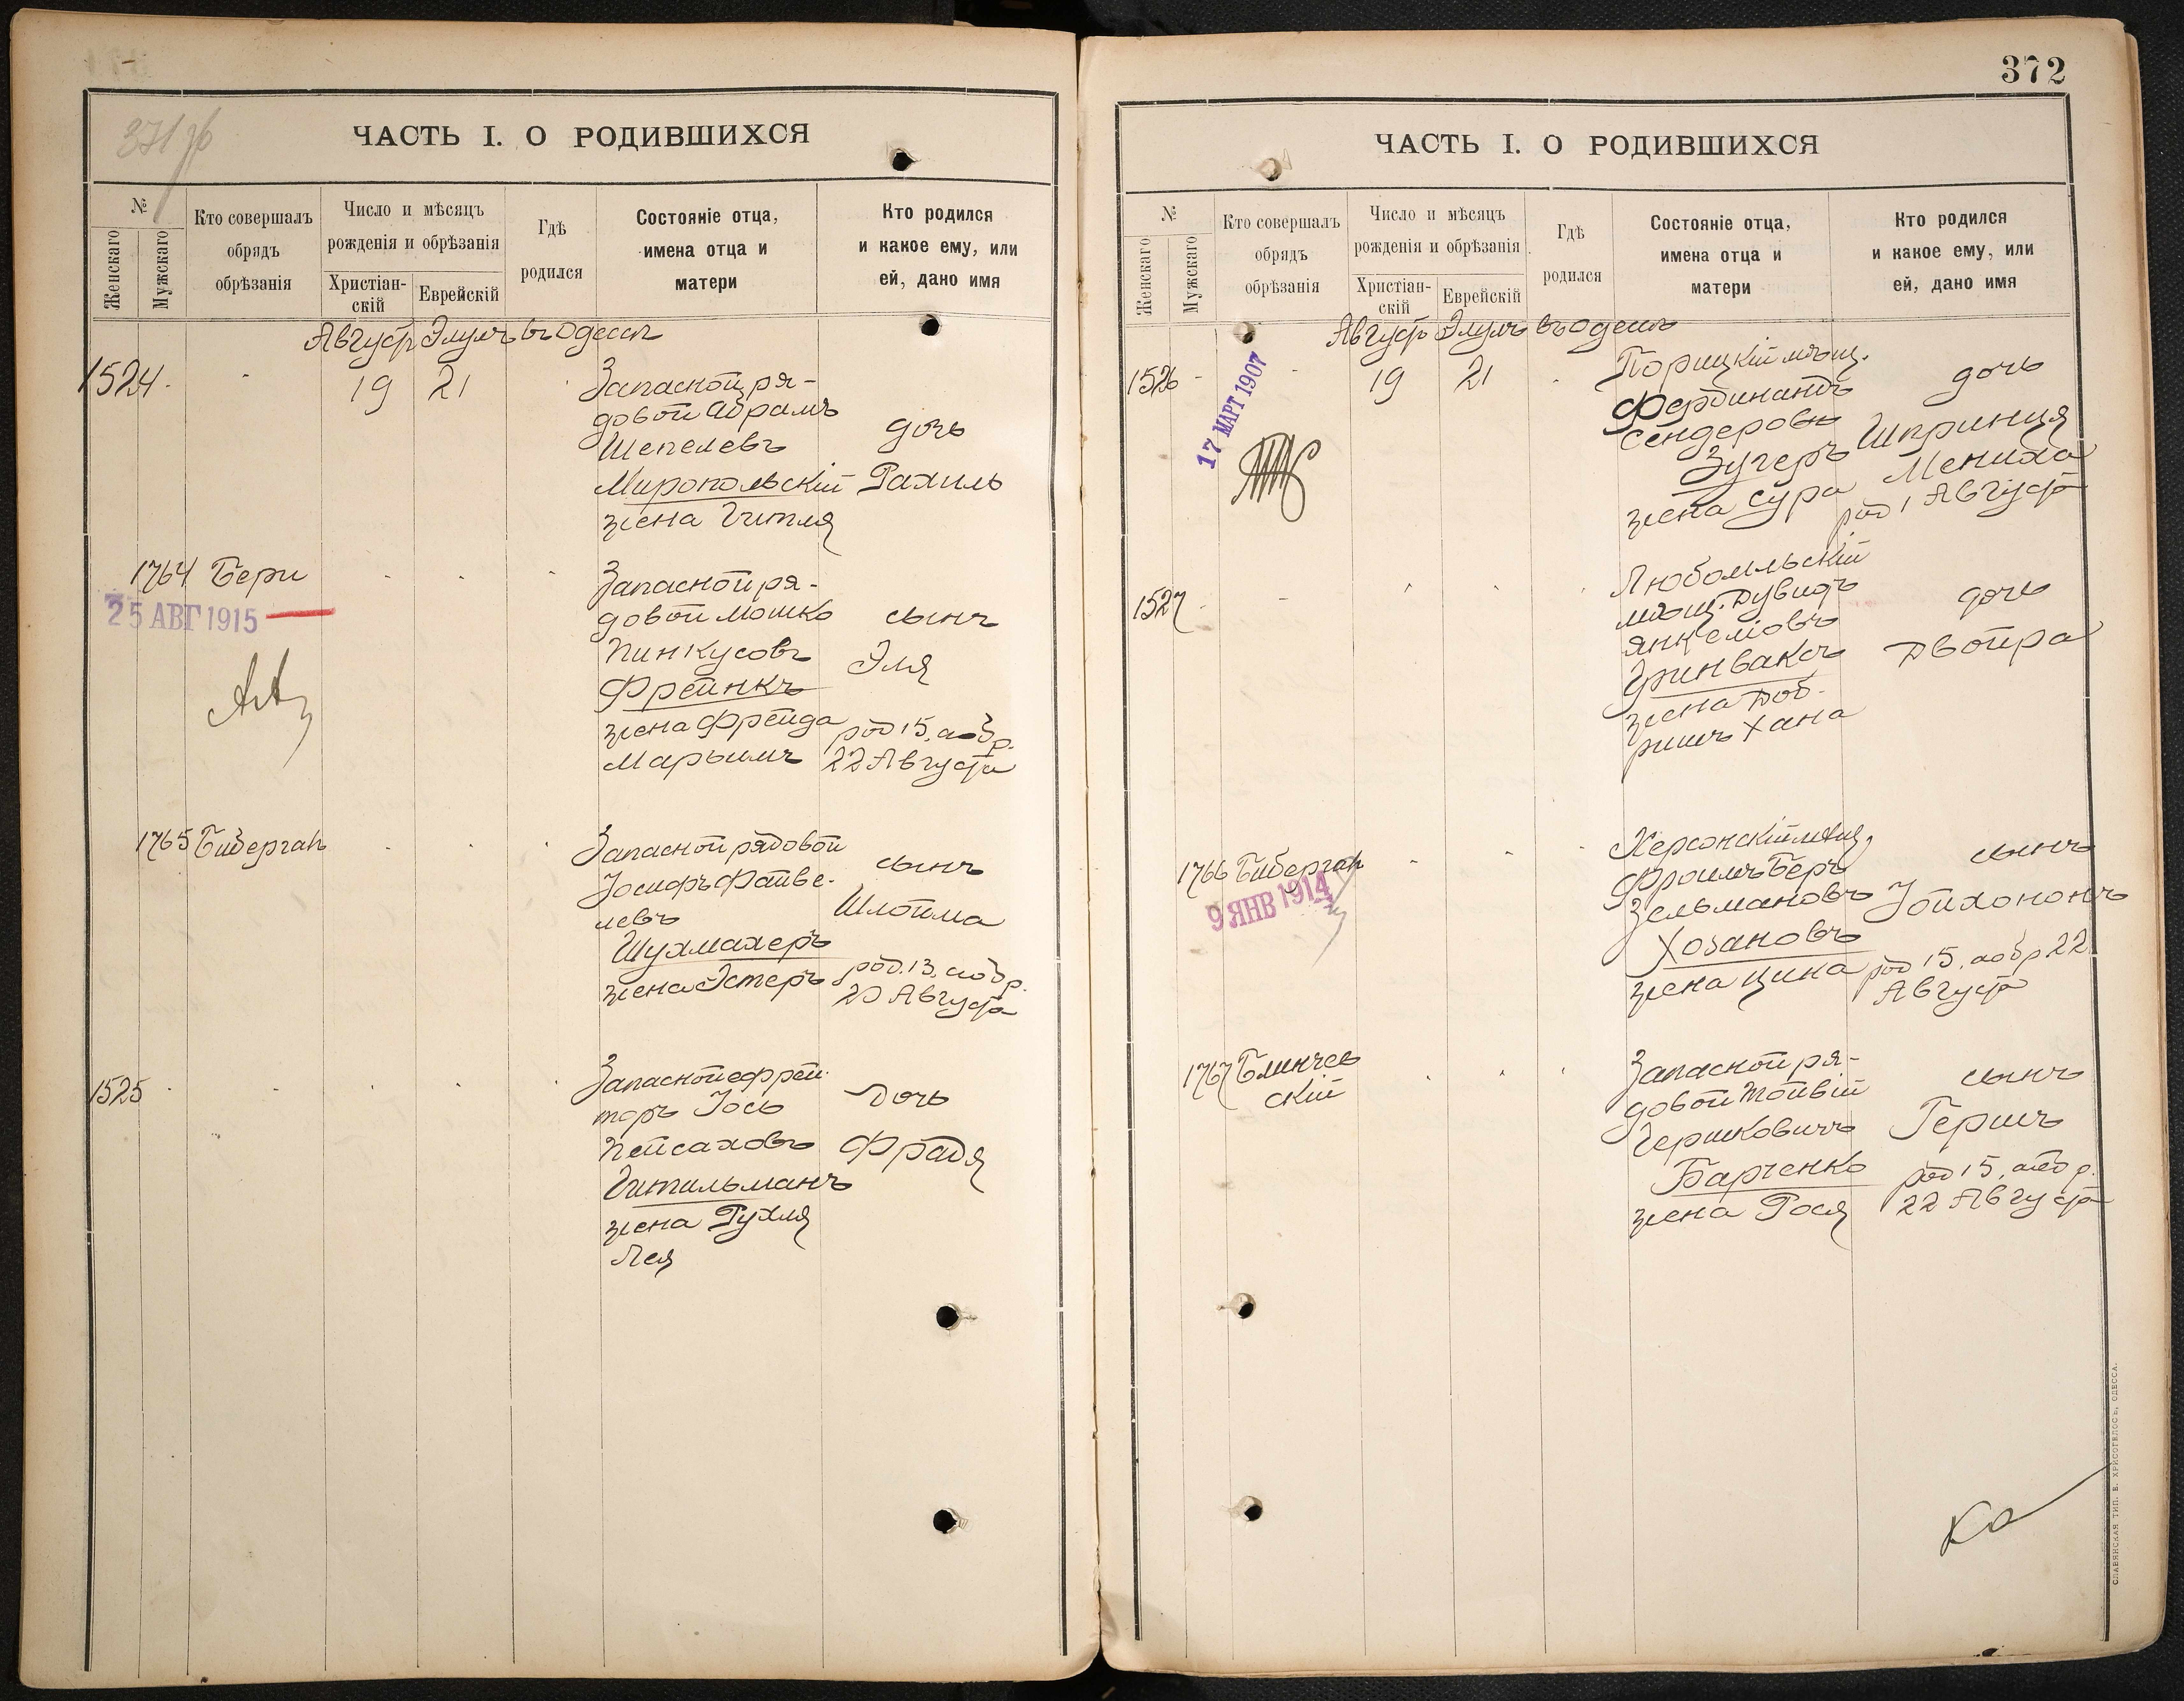 ЧАСТЬ I. О РОДИВШИХСЯ
№
Женскаго
Мужскаго
Кто совершалъ
обрядъ
обрѣзанія
Число и мѣсяцъ
рожденія и обрѣзанія
Христіан-
скій
Еврейскій
Гдѣ
родился
Состояніе отца,
имена отца и
матери
Кто родился
и какое ему, или
ей, дано имя
Августъ Элулъ въ Одессѣ
1524
19 21
Запасной ря-
довой Абрамъ
Шепелевъ
Миропольскій
жена Гитля
дочь
Рахиль
1764 Бери
25 АВГ 1915
Запасной ря-
довой Мошко
Пинкусовъ
Фрейнкъ
жена Фрейда
Марьимъ
сынъ
Эля
род 15, а обр.
22 Августа
1765 Бидерган
Запасной рядовой
Іосифъ Файве-
левъ
Шухмахеръ
жена Эстеръ
сынъ
Шлойма
род. 13, а обр.
20 Августа
1525
Запасной ефрей-
торъ Іось
Пейсаховъ
Гительманъ
жена Рухля
Лея
дочь
Фрадя
372
ЧАСТЬ I. О РОДИВШИХСЯ
№
Женскаго
Мужскаго
Кто совершалъ
обрядъ
обрѣзанія
Число и мѣсяцъ
рожденія и обрѣзанія
Христіан-
скій
Еврейскій
Гдѣ
родился
Состояніе отца,
имена отца и
матери
Кто родился
и какое ему, или
ей, дано имя
Августъ Элулъ въ Одессѣ
1526
17 МАРТ 1907
19 21
Порицкій мѣщ.
Фердинандъ
Сендеровъ
Зугеръ
жена Сура
дочь
Шпринця
Мениха
род 1 Августа
1527
Любомльскій
мѣщ. Дувидъ
Янкеліовъ
Гринваксъ
жена Доб-
ришъ Хана
дочь
Двойра
1766 Бидерган
9 ЯНВ 1914
Херсонскій мѣщ.
Фроимъ Беръ
Зельмановъ
Хозановъ
жена Цина
сынъ
Іойхононъ
род 15, а обр 22
Августа
1767 Блинчев
скій
Запасной ря-
довой Тойвій
Гершковичъ
Барченко
жена Рося
сынъ
Гершъ
род 15, а обр.
22 Августа
СЛАВЯНСКАЯ ТИП. Е. ХРИСОГЕЛОСЪ, ОДЕССА.